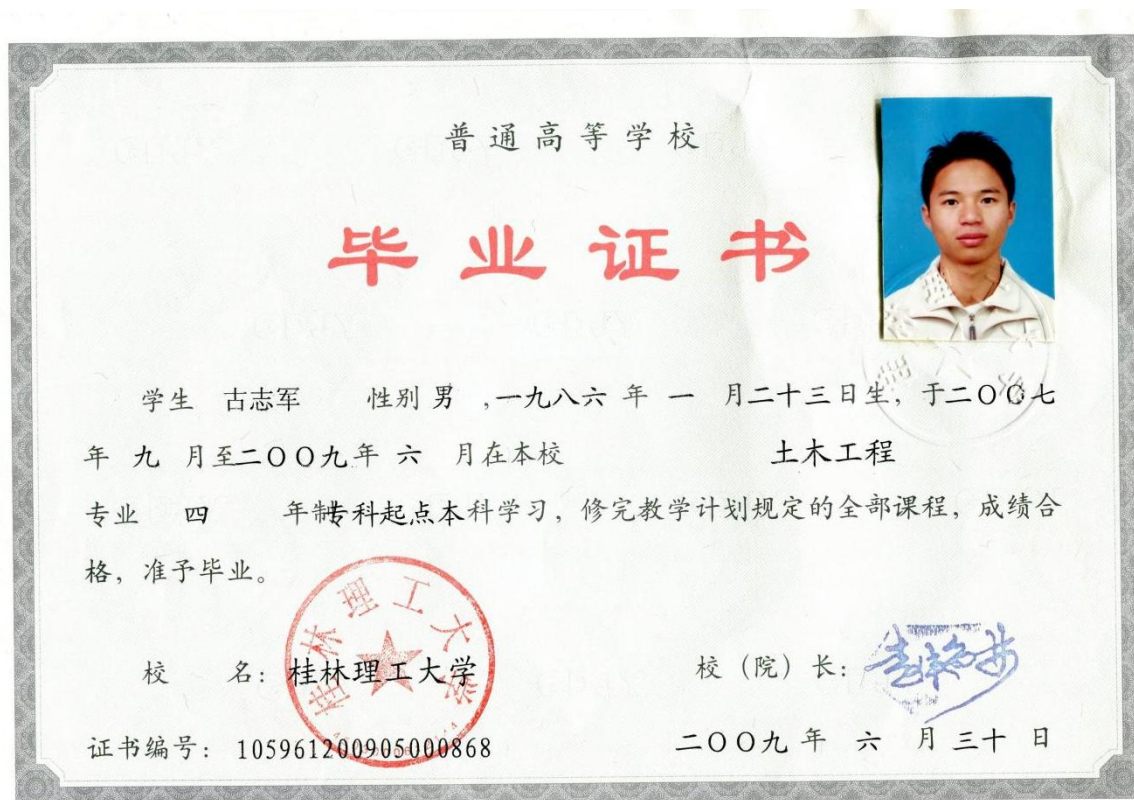 普通高等学校
毕业证书
学生 古志军 性别 男 ,一九八六 年 一 月二十三日生，于二〇〇七
年 九 月至二〇〇九年 六 月在本校 土木工程
专业 四 年制专科起点本科学习，修完教学计划规定的全部课程，成绩合
格，准予毕业。
桂林理工大学
校 名：桂林理工大学 校（院）长：
证书编号：105961200905000868 二〇〇九 年 六 月 三十 日